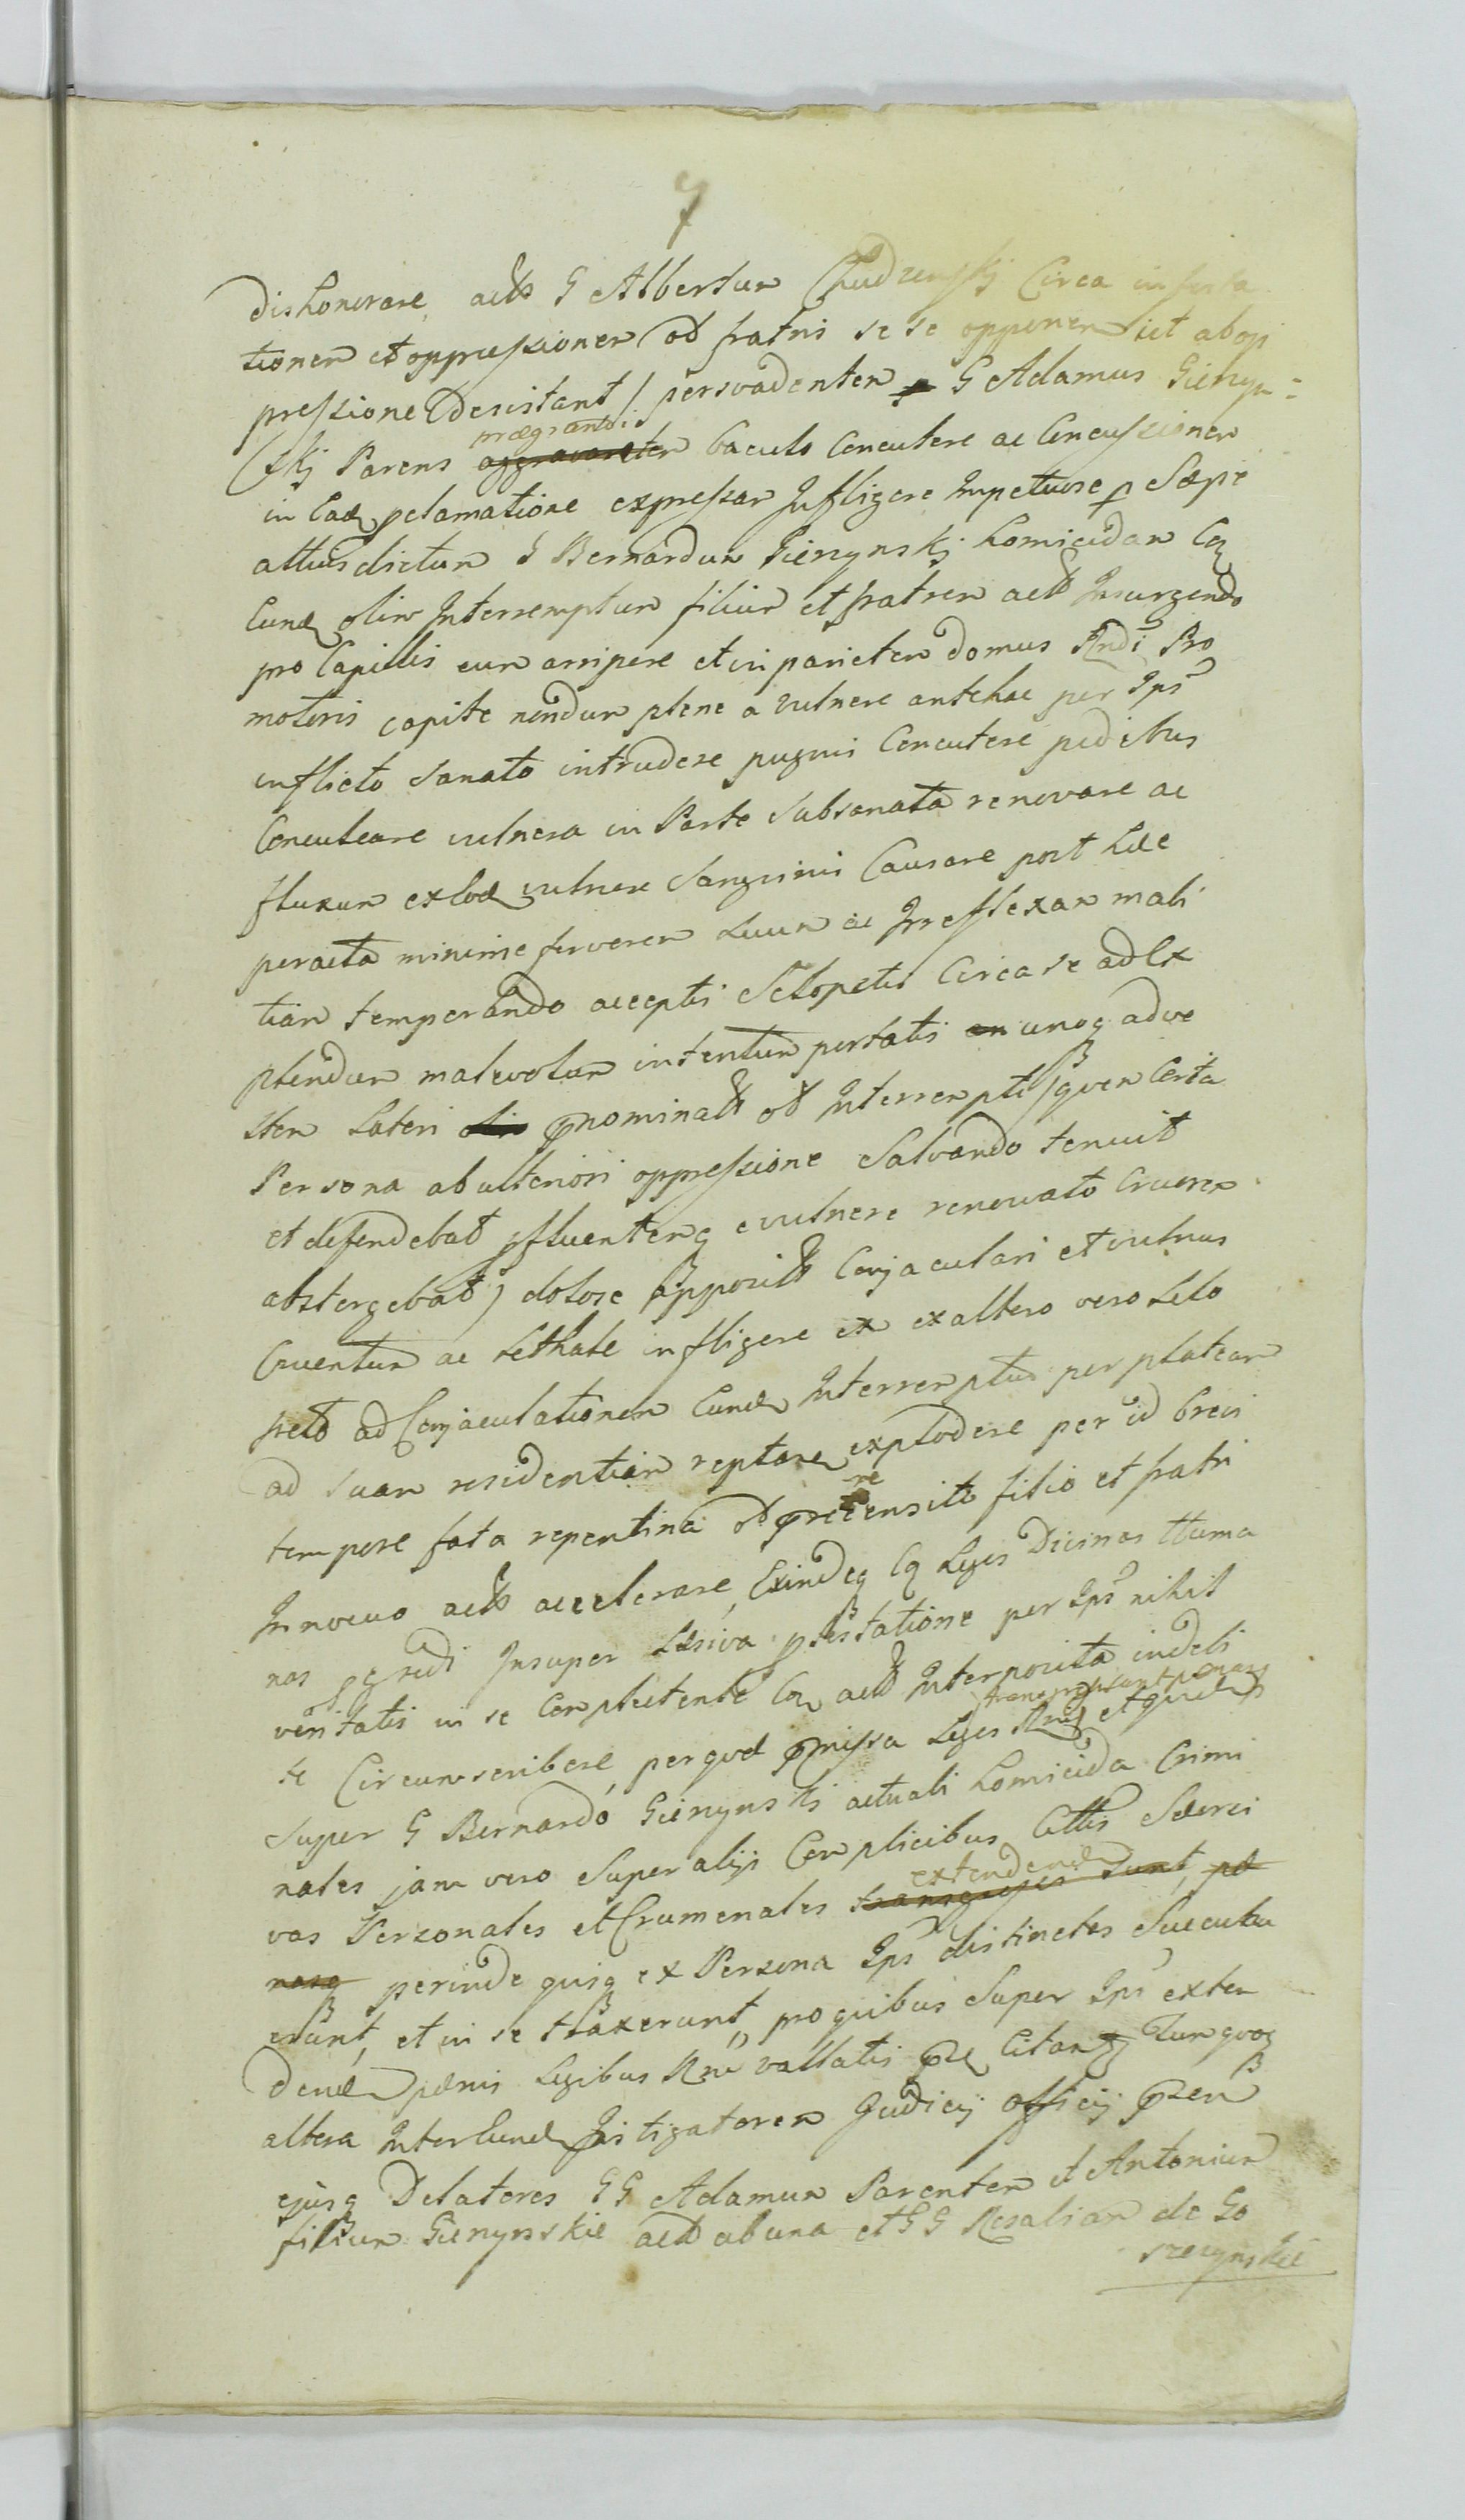 7
dishonorare, actos G Albertum Chudzynskj Circa infesta
tionem et oppressionem od fratris se se opponen ut abop
pressione desistant / persvadentem G Adamus Gienyn=
skj Parens prægrandi baculo Concutere ac Concussionem
in Eadem pclamatione expressam Infligere Impetuose p Sæpe
attus dictum G Bernardum Gienynskj homicidam Coq
Eundem olim Interremptum filium et fratrem actos Insurgendo
pro Capillis eum arripere et in parietem domus Rndi Pro
motoris capite nondum plene a vulnere antehac per Ips
inflicto Sanato intrudere pugnis Concutere pedibus
Conculcare vulnera in Parte Subsanata renovare ac
fluxum ex eod vulnere Sanguinis Causare post hæc
peracta minime fervorem suum ac Irreflexam mali
tiam temperando acceptis Sclopetis Circa se ad Ex
plendum malevolum intentum portatis unoq adve
rsem Lateri pnominatos od Interrempti / quem Certa
Persona ab ulteriori oppressione Salvando tenuit
et defendebat pfluentemq e vulnere renovato Cruorem
abstergebat / dolose apposito Conjaculari et vulnus
Cruentum ac Lethale infligere ex altero vero Sclo
peto ad Conjaculationem Eundem Interremptum per plateam
ad Suam residentiam reptare explodere per id brevi
tempore fata repentina od præ re censito filio et fratri
In nocuo actos accelerare, Exindeq Coq Leges Divinas Huma
nas pgredi Insuper Læsiva ptestatione per Ips nihil
veritatis in se Complectente Coq actos Interposita indebi
te Circumscribere, per quod præmissa Leges Rni transgressi sunt pœnas et quidem
Super G Bernardo Gienynski actuali homicida Crimi
nales jam vero Super alijs Complicibus Cittis Seorsi
vas Personales et Crumenales extendendas transgressi sunt, pœ
nasq perinde quisq ex Persona Ips distinctas Succubu
erunt, et in se traxerunt, pro quibus Super Ips exten
dendis pœnis Legibus Rni vallatis præ Citantur Tum quoq
altera Interlunde Instigatorem Judicij officij præsen
ejusq Delatores GG Adamum Parentem et Antonium
filium Gienynskie actos ab una et GG Rosaliam de Go
szczynskie